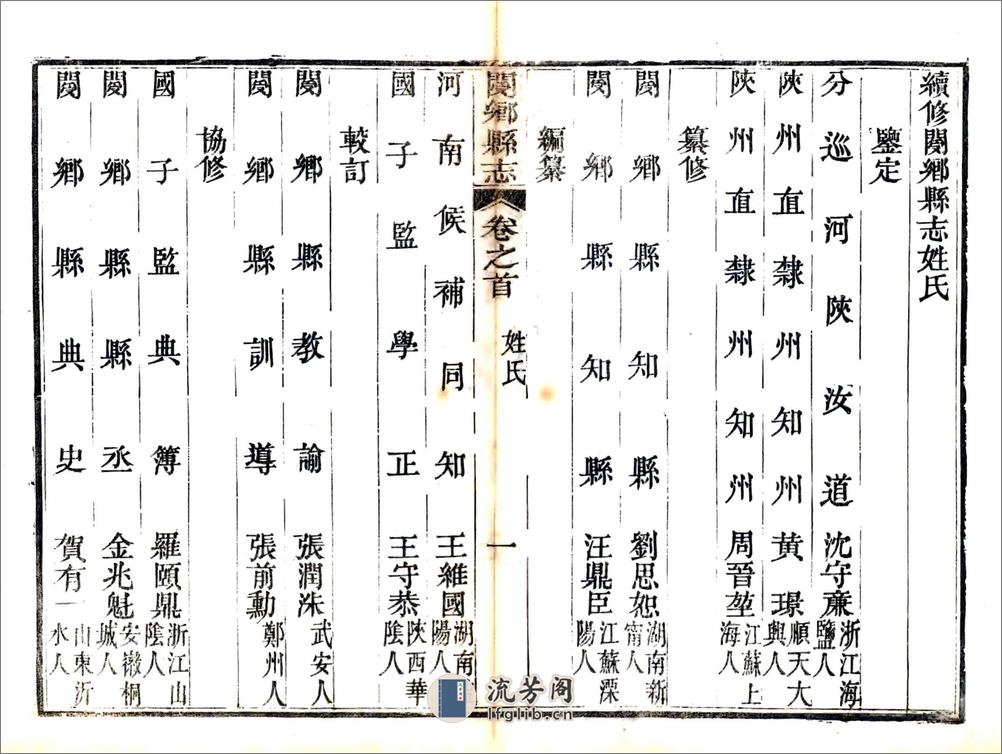 續修閿鄉縣志姓氏
鑒定
分巡河陝汝道沈守廉浙江海鹽人
陝州直隸州知州黄璟順天大興人
陝州直隸州知州周晉堃江蘇上海人
纂修
閿鄉縣知縣劉思恕湖南新甯人
閿鄉縣知縣汪鼎臣江蘇溧陽人
編纂
閿鄉縣志 卷之首 姓氏 一
河南候補同知王維國湖南 陽人
國子監學正王守恭陝西華陰人
較訂
閿鄉縣教諭張潤洙武安人
閿鄉縣訓導張前勳鄭州人
協修
國子監典簿羅頤鼎浙江山陰人
閿鄉縣縣丞金兆魁安徽桐城人
閿鄉縣典史賀有一山東沂水人
流芳阁
lfglib.cn